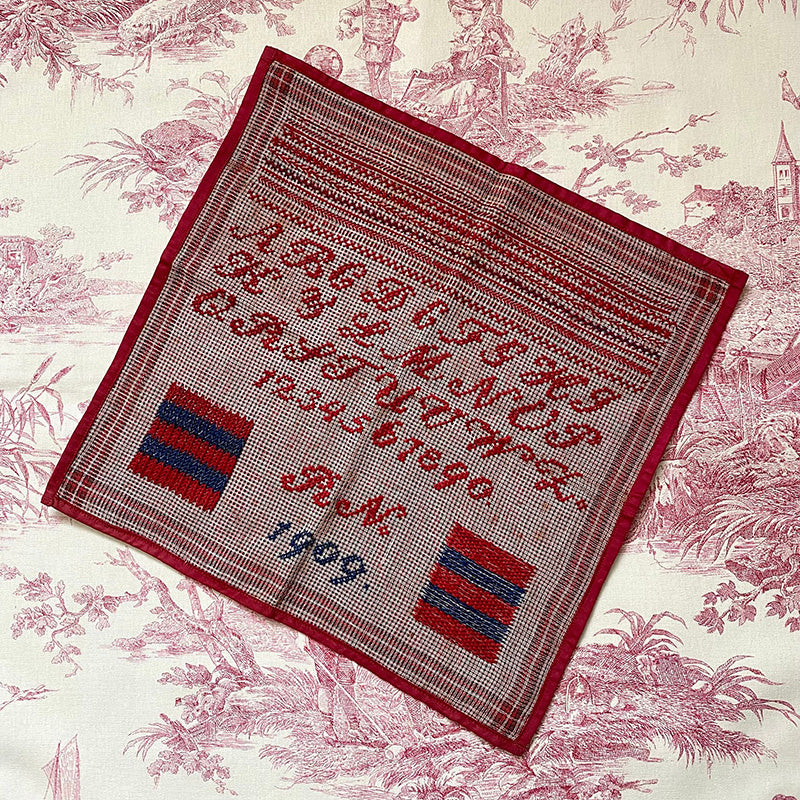 A B C D E F G H I
K L M N O P
Q R S T U V W Z.
1234567890.
R N.
1909.